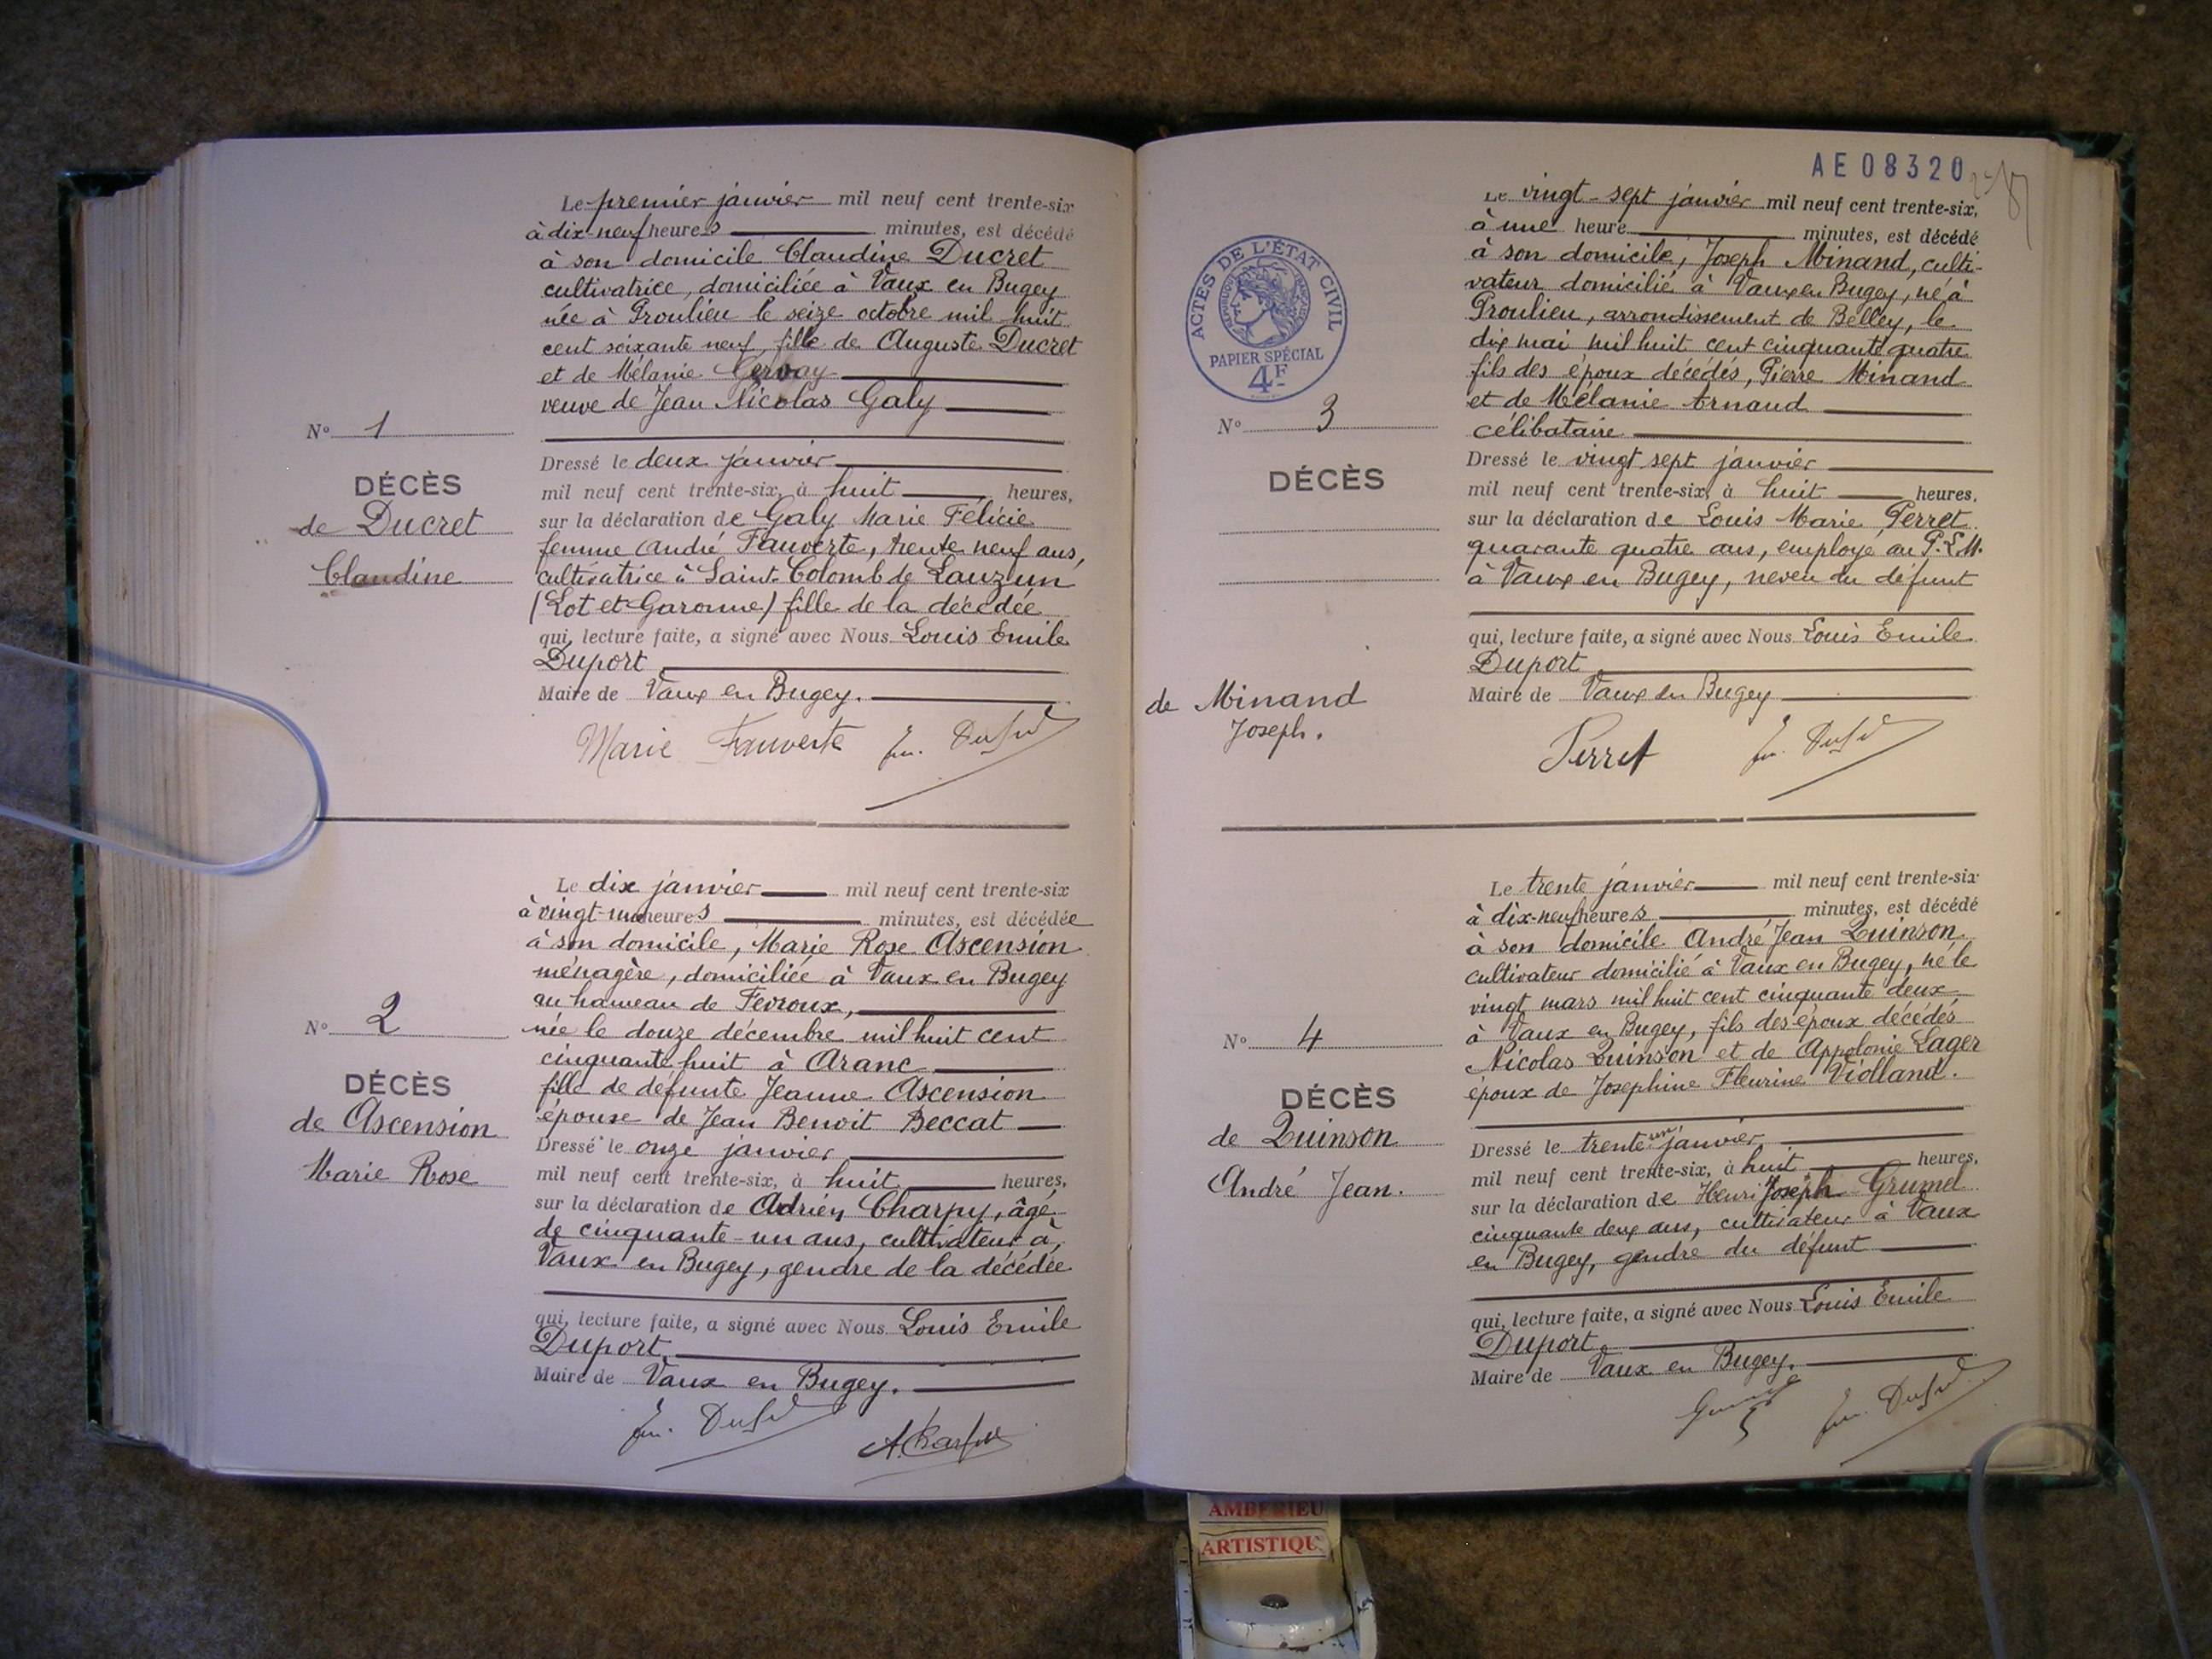 Le premier janvier mil neuf cent trente-six
à dix-neuf heures minutes, est décédé
à son domicile Claudine Ducret
cultivatrice, domiciliée à Vaux en Bugey
née à Proulieu le seize octobre mil huit
cent soixante neuf, fille de Auguste Ducret
et de Mélanie Gervay
veuve de Jean Nicolas Galy
N° 1
DÉCÈS
de Ducret
Claudine
Dressé le deux janvier
mil neuf cent trente-six, à huit heures,
sur la déclaration de Galy Marie Félicie
femme André Fauverte, trente neuf ans,
cultivatrice à Saint-Colomb de Lauzun
(Lot et Garonne) fille de la décédée
qui, lecture faite, a signé avec Nous Louis Emile
Duport
Maire de Vaux en Bugey.
Marie Fauverte
Le dix janvier mil neuf cent trente-six
à vingt-une heures minutes, est décédée
à son domicile, Marie Rose Ascension
ménagère, domiciliée à Vaux en Bugey
au hameau de Fevroux,
née le douze décembre mil huit cent
cinquante huit à Aranc
fille de défunte Jeanne Ascension
épouse de Jean Benoit Beccat
N° 2
DÉCÈS
de Ascension
Marie Rose
Dressé le onze janvier
mil neuf cent trente-six, à huit heures,
sur la déclaration de Adrien Charpy, âgé
de cinquante-un ans, cultivateur à
Vaux en Bugey, gendre de la décédée
qui, lecture faite, a signé avec Nous Louis Emile
Duport
Maire de Vaux en Bugey.
AE08320
Le vingt-sept janvier mil neuf cent trente-six,
à une heure minutes, est décédé
à son domicile, Joseph Minand, culti-
vateur domicilié à Vaux en Bugey, né à
Proulieu, arrondissement de Belley, le
dix mai mil huit cent cinquante quatre
fils des époux décédés, Pierre Minand
et de Mélanie Arnaud
célibataire
ACTES DE L'ÉTAT CIVIL
RÉPUBLIQUE FRANÇAISE
PAPIER SPÉCIAL
4F
N° 3
DÉCÈS
de Minand
Joseph.
Dressé le vingt sept janvier
mil neuf cent trente-six, à huit heures,
sur la déclaration de Louis Marie Perret
quarante quatre ans, employé au P.L.M.
à Vaux en Bugey, neveu du défunt
qui, lecture faite, a signé avec Nous Louis Emile
Duport
Maire de Vaux en Bugey
Perret
Le trente janvier mil neuf cent trente-six
à dix-neuf heures minutes, est décédé
à son domicile André Jean Quinson
cultivateur domicilié à Vaux en Bugey, né le
vingt mars mil huit cent cinquante deux
à Vaux en Bugey, fils des époux décédés
Nicolas Quinson et de Appolonie Lager
époux de Josephine Fleurine Violland.
N° 4
DÉCÈS
de Quinson
André Jean.
Dressé le trente un janvier
mil neuf cent trente-six, à huit heures,
sur la déclaration de Henri Joseph Grumel
cinquante deux ans, cultivateur à Vaux
en Bugey, gendre du défunt
qui, lecture faite, a signé avec Nous Louis Emile
Duport
Maire de Vaux en Bugey.
AMBERIEU
ARTISTIQU